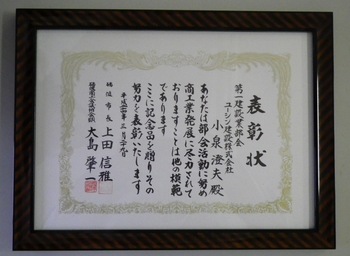 表彰状
第一建設業部会
ユーシン建設株式会社
小泉澄夫殿
あなたは部会活動に努め
商工業発展に尽力されて
おりますことは他の模範
であります
ここに記念品を贈りその
努力を表彰いたします
平成二十一年三月二十九日
市長上田信雅
大島肇一